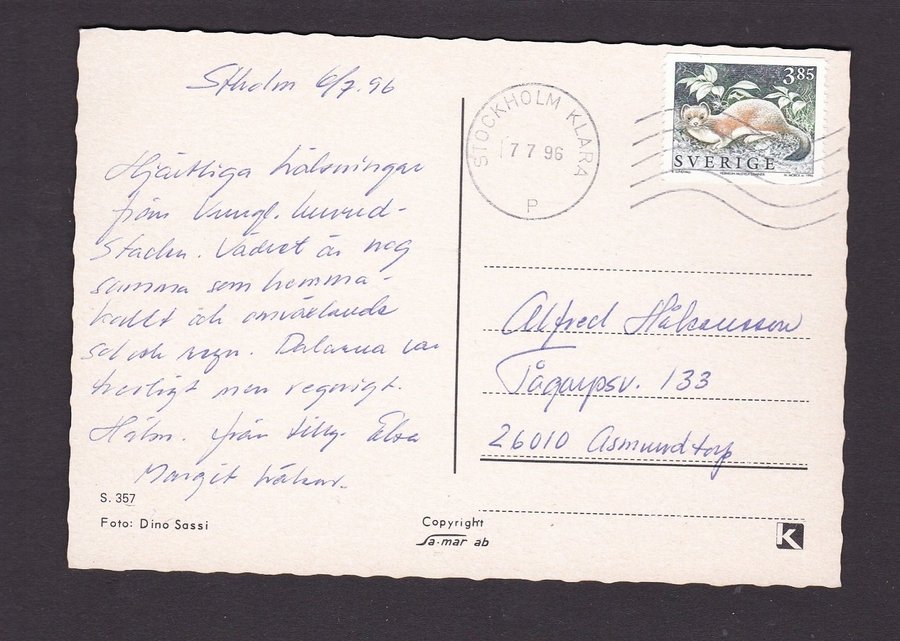 Stholm 6/7.96
Hjärtliga hälsningar
från Kungl. huvud-
staden. Vädret är nog
samma som hemma -
kallt och omväxlande
sol och regn. Dalarna var
trevligt men regnigt.
Hälsn. från Elsa
Margit hälsar.
S. 357
Foto: Dino Sassi
Copyright
Sa-mar ab
STOCKHOLM KLARA
7 7 96
P
3.85
SVERIGE
Alfred Håkansson
Tågarpsv. 133
26010 Asmundtorp
K